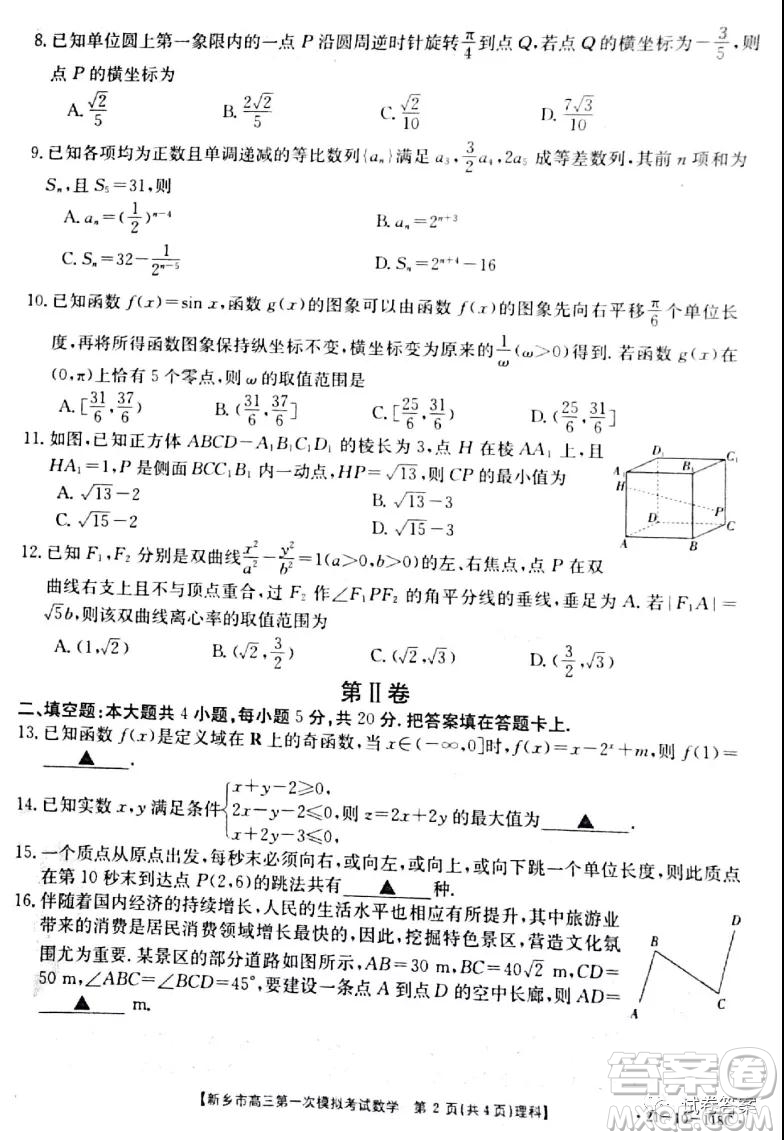 8.已知单位圆上第一象限内的一点 P 沿圆周逆时针旋转 π/4 到点 Q,若点 Q 的横坐标为 −3/5,则
点 P 的横坐标为
A. √2/5 B. 2√2/5 C. √2/10 D. 7√3/10
9.已知各项均为正数且单调递减的等比数列{aₙ}满足 a₃,3/2 a₄,2a₅ 成等差数列,其前 n 项和为
Sₙ,且 S₅=31,则
A. aₙ=(1/2)ⁿ⁻⁴ B. aₙ=2ⁿ⁺³
C. Sₙ=32−1/2ⁿ⁻⁵ D. Sₙ=2ⁿ⁺⁴−16
10.已知函数 f(x)=sin x,函数 g(x)的图象可以由函数 f(x)的图象先向右平移 π/6 个单位长
度,再将所得函数图象保持纵坐标不变,横坐标变为原来的 1/ω(ω>0)得到.若函数 g(x)在
(0,π)上恰有 5 个零点,则 ω 的取值范围是
A. [31/6,37/6) B. (31/6,37/6] C. [25/6,31/6) D. (25/6,31/6]
11.如图,已知正方体 ABCD−A₁B₁C₁D₁ 的棱长为 3,点 H 在棱 AA₁ 上,且
HA₁=1,P 是侧面 BCC₁B₁ 内一动点,HP=√13,则 CP 的最小值为
A. √13−2 B. √13−3
C. √15−2 D. √15−3
D₁
C₁
A₁
B₁
H
P
D
C
A
B
12.已知 F₁,F₂ 分别是双曲线 x²/a²−y²/b²=1(a>0,b>0)的左、右焦点,点 P 在双
曲线右支上且不与顶点重合,过 F₂ 作∠F₁PF₂ 的角平分线的垂线,垂足为 A.若|F₁A|=
√5b,则该双曲线离心率的取值范围为
A. (1,√2) B. (√2,3/2) C. (√2,√3) D. (3/2,√3)
第Ⅱ卷
二、填空题:本大题共 4 小题,每小题 5 分,共 20 分.把答案填在答题卡上.
13.已知函数 f(x)是定义域在 R 上的奇函数,当 x∈(−∞,0]时,f(x)=x−2ˣ+m,则 f(1)=
▲.
14.已知实数 x,y 满足条件{x+y−2≥0,
2x−y−2≤0,
x+2y−3≤0,
则 z=2x+2y 的最大值为 ▲.
15.一个质点从原点出发,每秒末必须向右,或向左,或向上,或向下跳一个单位长度,则此质点
在第 10 秒末到达点 P(2,6)的跳法共有 ▲ 种.
16.伴随着国内经济的持续增长,人民的生活水平也相应有所提升,其中旅游业
带来的消费是居民消费领域增长最快的,因此,挖掘特色景区,营造文化氛
围尤为重要.某景区的部分道路如图所示,AB=30 m,BC=40√2 m,CD=
50 m,∠ABC=∠BCD=45°,要建设一条点 A 到点 D 的空中长廊,则 AD=
▲ m.
D
B
A
C
【新乡市高三第一次模拟考试数学 第 2 页(共 4 页)理科】
试卷答案